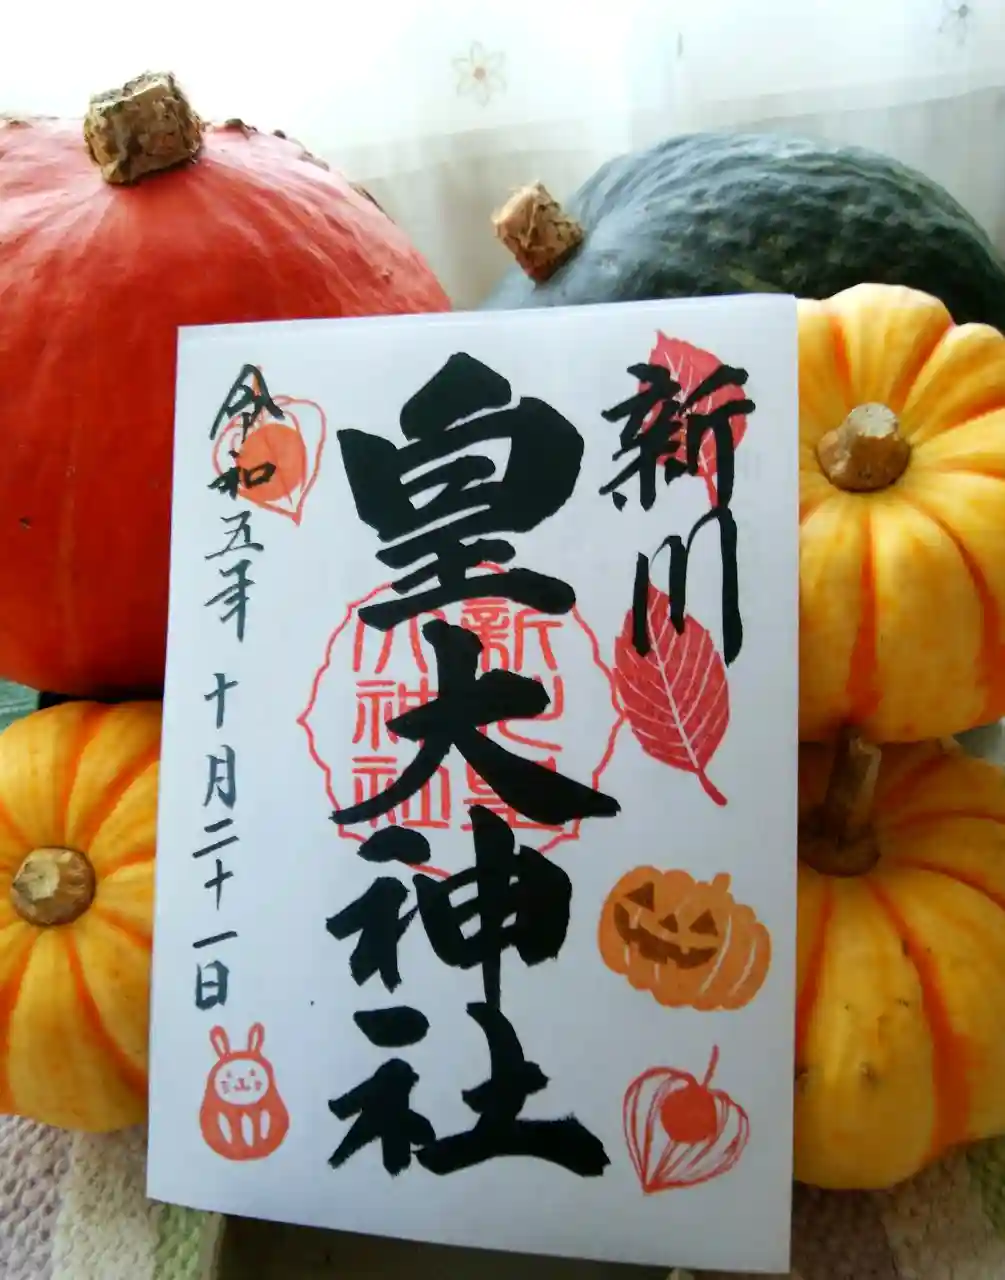 新川
皇大神社
新川皇
大神社
令和五年 十月二十一日